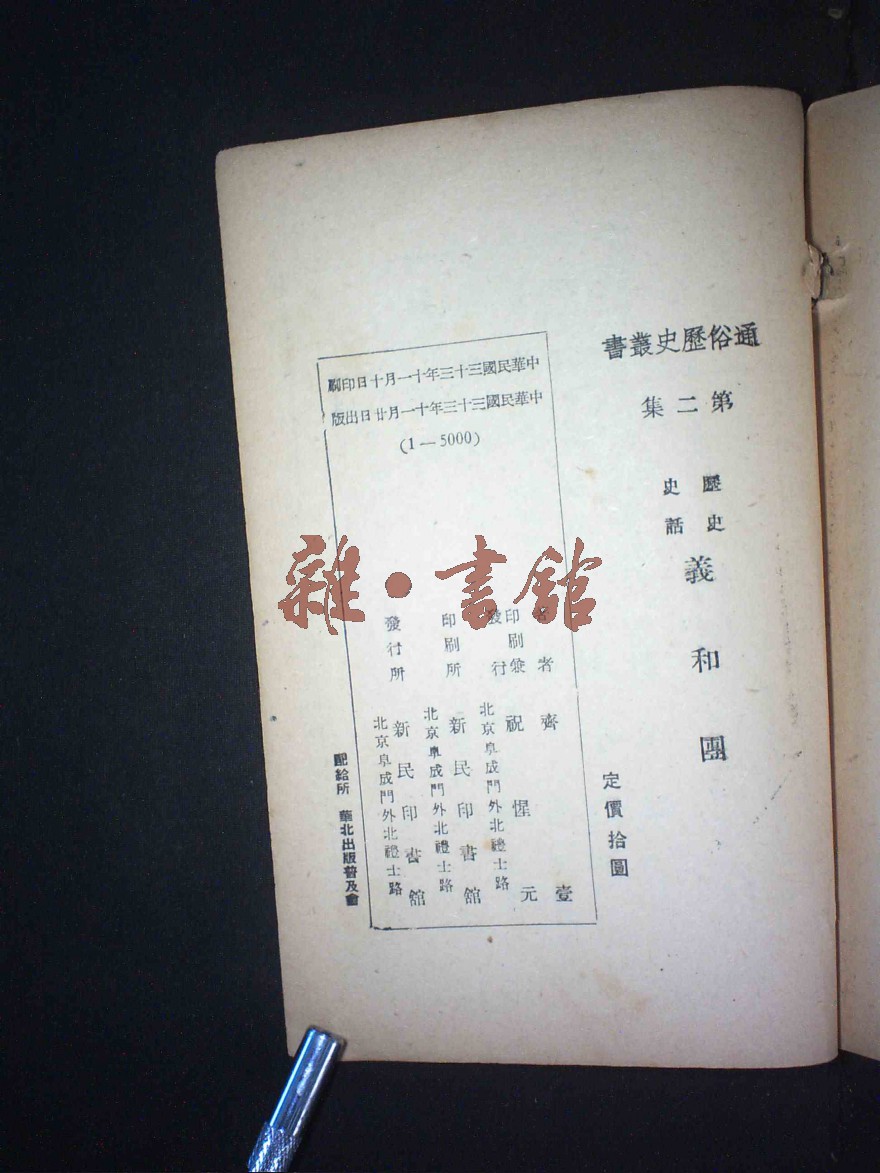 通俗歷史叢書
第二集
歷史
史話
義和團
定價拾圓
中華民國三十三年十一月十日印刷
中華民國三十三年十一月廿日出版
(1—5000)
著者 齊壹
印刷兼
發行 祝惺元
北京阜成門外北禮士路
印刷所 新民印書館
北京阜成門外北禮士路
發行所 新民印書館
北京阜成門外北禮士路
配給所 華北出版普及會
雜·書館